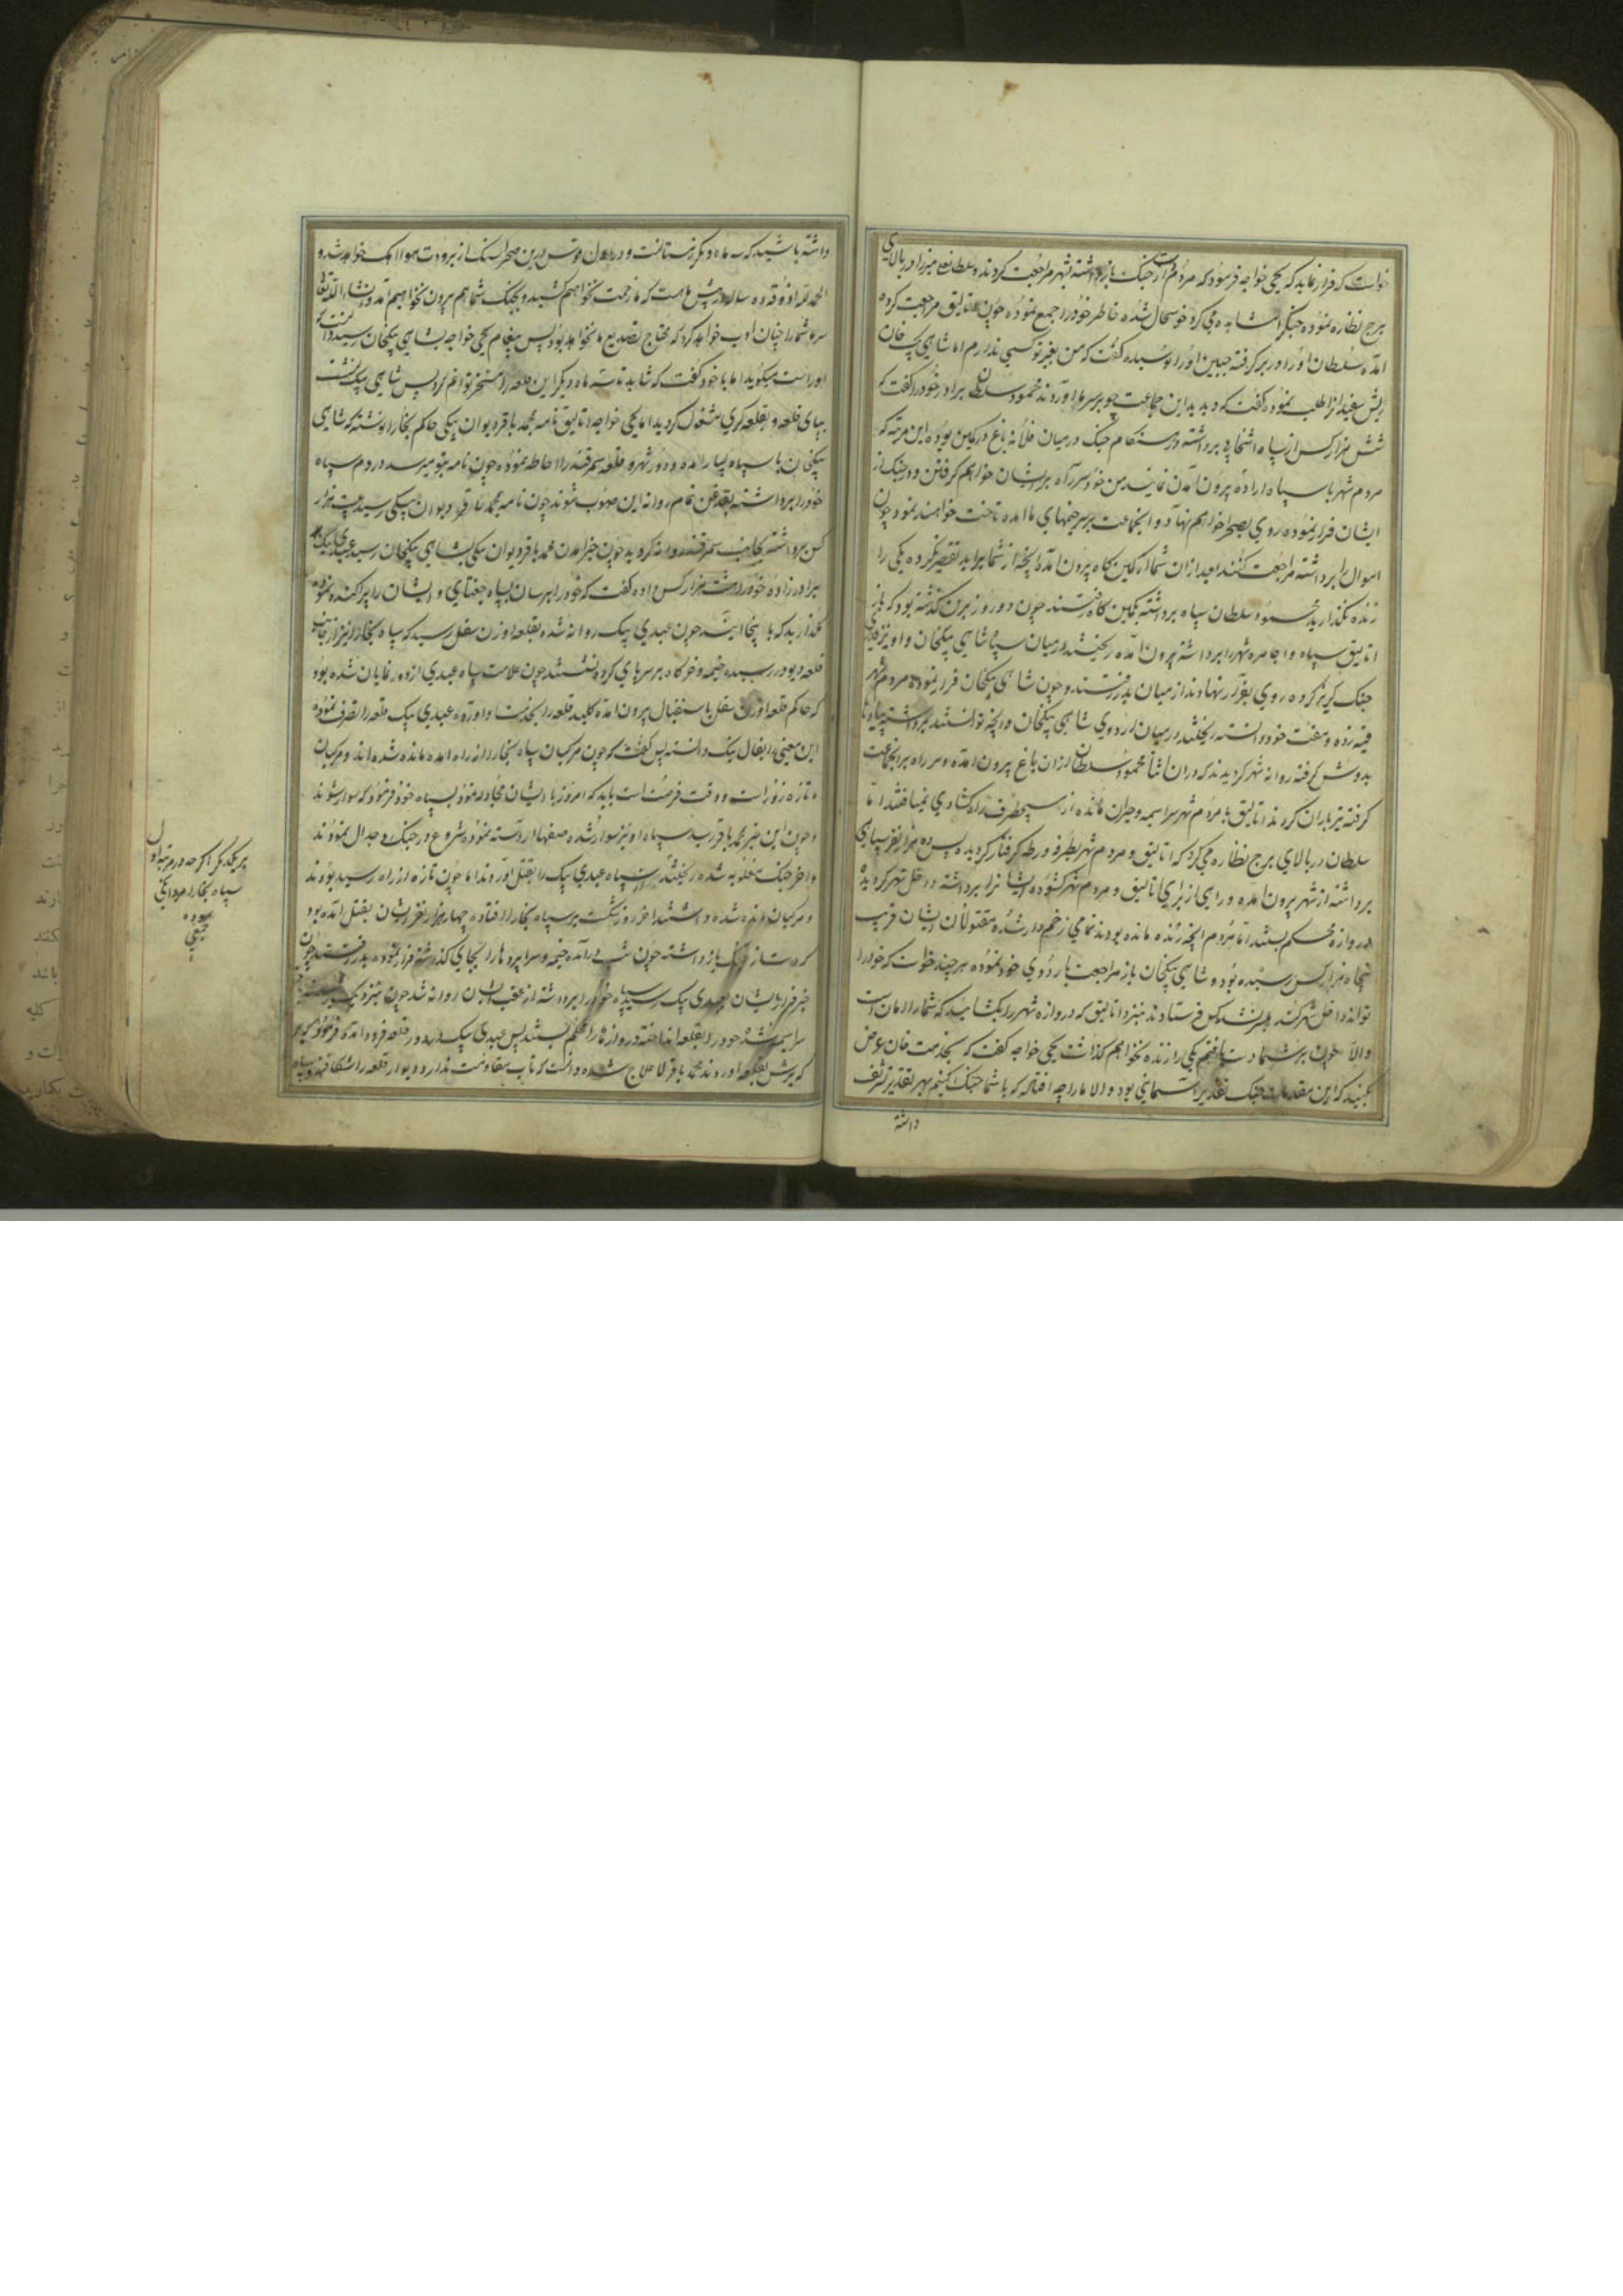 خواست که فرار نماید که یحیی خواجه فرمود که مردم از جنک باز داشته بشهر مراجعت کردند و سلطان میرزا در بالای
برج نظاره نموده جنک را مشاهده می کرد خوشحال شده خاطر خود را جمع نموده چون اتالیق مراجعت کرده
آمد سلطان او را در بر گرفته جبین او را بوسیده گفت که من بغیر تو کسی ندارم اما شاهی بیک خان
ریش سفیدانرا طلب نموده گفت که دیدید این جماعت چه بر سر ما آوردند محمود سلطان برادر خود را گفت که
شش هزار کس از سپاه برداشته در میان فلانه باغ در کمین بوده این مرتبه که
مردم شهر با سپاه اراده بیرون آمدن نمایند من خود سر راه بر ایشان خواهم گرفتن و در جنک از
ایشان فرار نموده روی بصحرا خواهم نهاد و آنجماعت بر سر خیمهای ما آمده تاخت خواهند نمود چون
اموال را برداشته مراجعت کنند بعد ازان شما از کمین کاه بیرون آمده آنچه از شما براید تقصیر نکرده یکی را
زنده نگذارید محمود سلطان سپاه برداشته بکمین کاه رفتند چون دو روز برین گذشته بود که
اتالیق سپاه و اجامره شهر را برداشته بیرون آمده ریختند در میان سپاه شاهی بیکخان و او نیز
جنک گریز کرده روی بفرار نهادند از میان بدر رفتند و چون شاهی بیکخان فرار نموده مردم شهر
خود دانسته ریختند در میان اردوی شاهی بیکخان و آنچه توانستند برداشته
بدوش گرفته روانه شهر گردیدند که دران اثنا محمود سلطان ازان باغ بیرون آمده و سر راه بر آنجماعت
گرفته تیر باران کردند اتالیق با مردم شهر سراسیمه و حیران مانده از هیچ طرف راه کشادی نمییافتند اما
سلطان در بالای برج نظاره می کرد که اتالیق و مردم شهر بطرفه ورطه گرفتار گردیده پس ده هزار نفر سپاهی
برداشته از شهر بیرون آمده و راهی از برای اتالیق و مردم شهر گشوده ایشانرا برداشته داخل شهر گردیده
دروازه محکم بستند اما مردم آنچه زنده مانده بودند تمامی زخم دار شده مقتولان ایشان قریب
پنجاه هزار کس رسیده بود و شاهی بیکخان باز مراجعت باردوی خود نموده هر چند خواست که خود را
تواند داخل شهر کند میسر نشد کس فرستادند بنزد اتالیق که دروازه شهر را بکشایید که شما را امان است
والا چون بر شما دست یافتم یکی را زنده نخواهم گذاشت یحیی خواجه گفت که بخدمت خان عرض
کنید که این مقدمات جنک تقدیر آسمانی بود والا ما را چه افتاده که با شما جنک کنیم بهر تقدیر تشریف
داشته
داشته باشید که سه ماه دیگر زمستانست و درین صحرا سنک از برودت هوا خواهد شد و
الحمد لله آذوقه ده ساله در پیش ماهست که ما زحمت نخواهیم کشید و بجنک شما هم بیرون نخواهیم آمد و انشاء الله تعالی
سرما شما را چنان ادب خواهد کرد که محتاج بتصدیع ما نخواهد بود پس پیغام یحیی خواجه بشاهی بیکخان رسید
او راست میگوید اما با خود گفت که شاید تا سه ماه دیگر این قلعه را مسخر توانم کرد پس شاهی بیک نشست
بپای قلعه و بقلعه گیری مشغول گردید اما یحیی خواجه اتالیق نامه بمحمد باقر دیوان بیکی حاکم بخارا نوشته که شاهی
بیکخان با سپاه بسیار آمده و دور شهر و قلعه سمرقند را احاطه نموده چون نامه بتو میرسد مردم سپاه
خود را برداشته بقدغن تمام روانه این صوب شوند چون نامه بمحمد باقر دیوان بیکی رسید بیست هزار
کس برداشته بجانب سمرقند روانه گردید چون خبر آمدن محمد باقر دیوان بیکی بشاهی بیکخان رسید عبیدی بیک
برادر زاده خود را هشت هزار کس داده گفت که خود را برسان بسپاه جغتای و ایشان را پراکنده نموده
نگذارید که باینجا آیند چون عبیدی بیک روانه شده بقلعه اوزن سفل رسید که سپاه بخارا نیز از جانب
قلعه دبود رسیده خیمه و خرگاه بر سر پای کرده نشستند چون علامت سپاه عبیدی از دور نمایان شده بود
که حاکم قلعه اوزن سفل باستقبال بیرون آمده کلید قلعه را بخدمت او آورده عبیدی بیک قلعه را تصرف نموده
این معنی را بفال نیک دانسته پس گفت که چون مرکبان سپاه بخارا از راه آمده مانده شده اند و مرکبان
ما تازه زور است و وقت فرصت است باید که امروز با ایشان مجادله نمود بسپاه خود فرمود که سوار شوند
و چون این خبر بمحمد باقر رسید سپاه او نیز سوار شده صفها آراسته نموده شروع در جنک و جدال نمودند
و آخر جنک مغلوبه شده ریختند سپاه عبیدی بیک را بقتل آوردند اما چون تازه از راه رسیده بودند
و مرکبان مانده شده داشتند آخر روز شکست بر سپاه بخارا افتاده چهار هزار نفر ایشان بقتل آمده بود
که دست از جنک باز داشته چون شب در آمد خیمه و سراپرده را بجای گذاشته فرار نموده بدر رفتند چون
خبر فرار ایشان بعبیدی بیک رسید سپاه خود را برداشته از عقب ایشان روانه شد چون بنزدیک رسیدند
سراسیمه شده خود را بقلعه انداخته دروازه ها را محکم بستند پس عبیدی بیک در دور قلعه فرود آمده فرمود که
که یورش بقلعه آوردند محمد باقر لاعلاج شده دانست که تاب مقاومت ندارد دیوار قلعه را شکافته و سپاه
بر یکدیگر اگر چه در مرتبه اول
سپاه بخارا مردانگی
نموده
جمعی